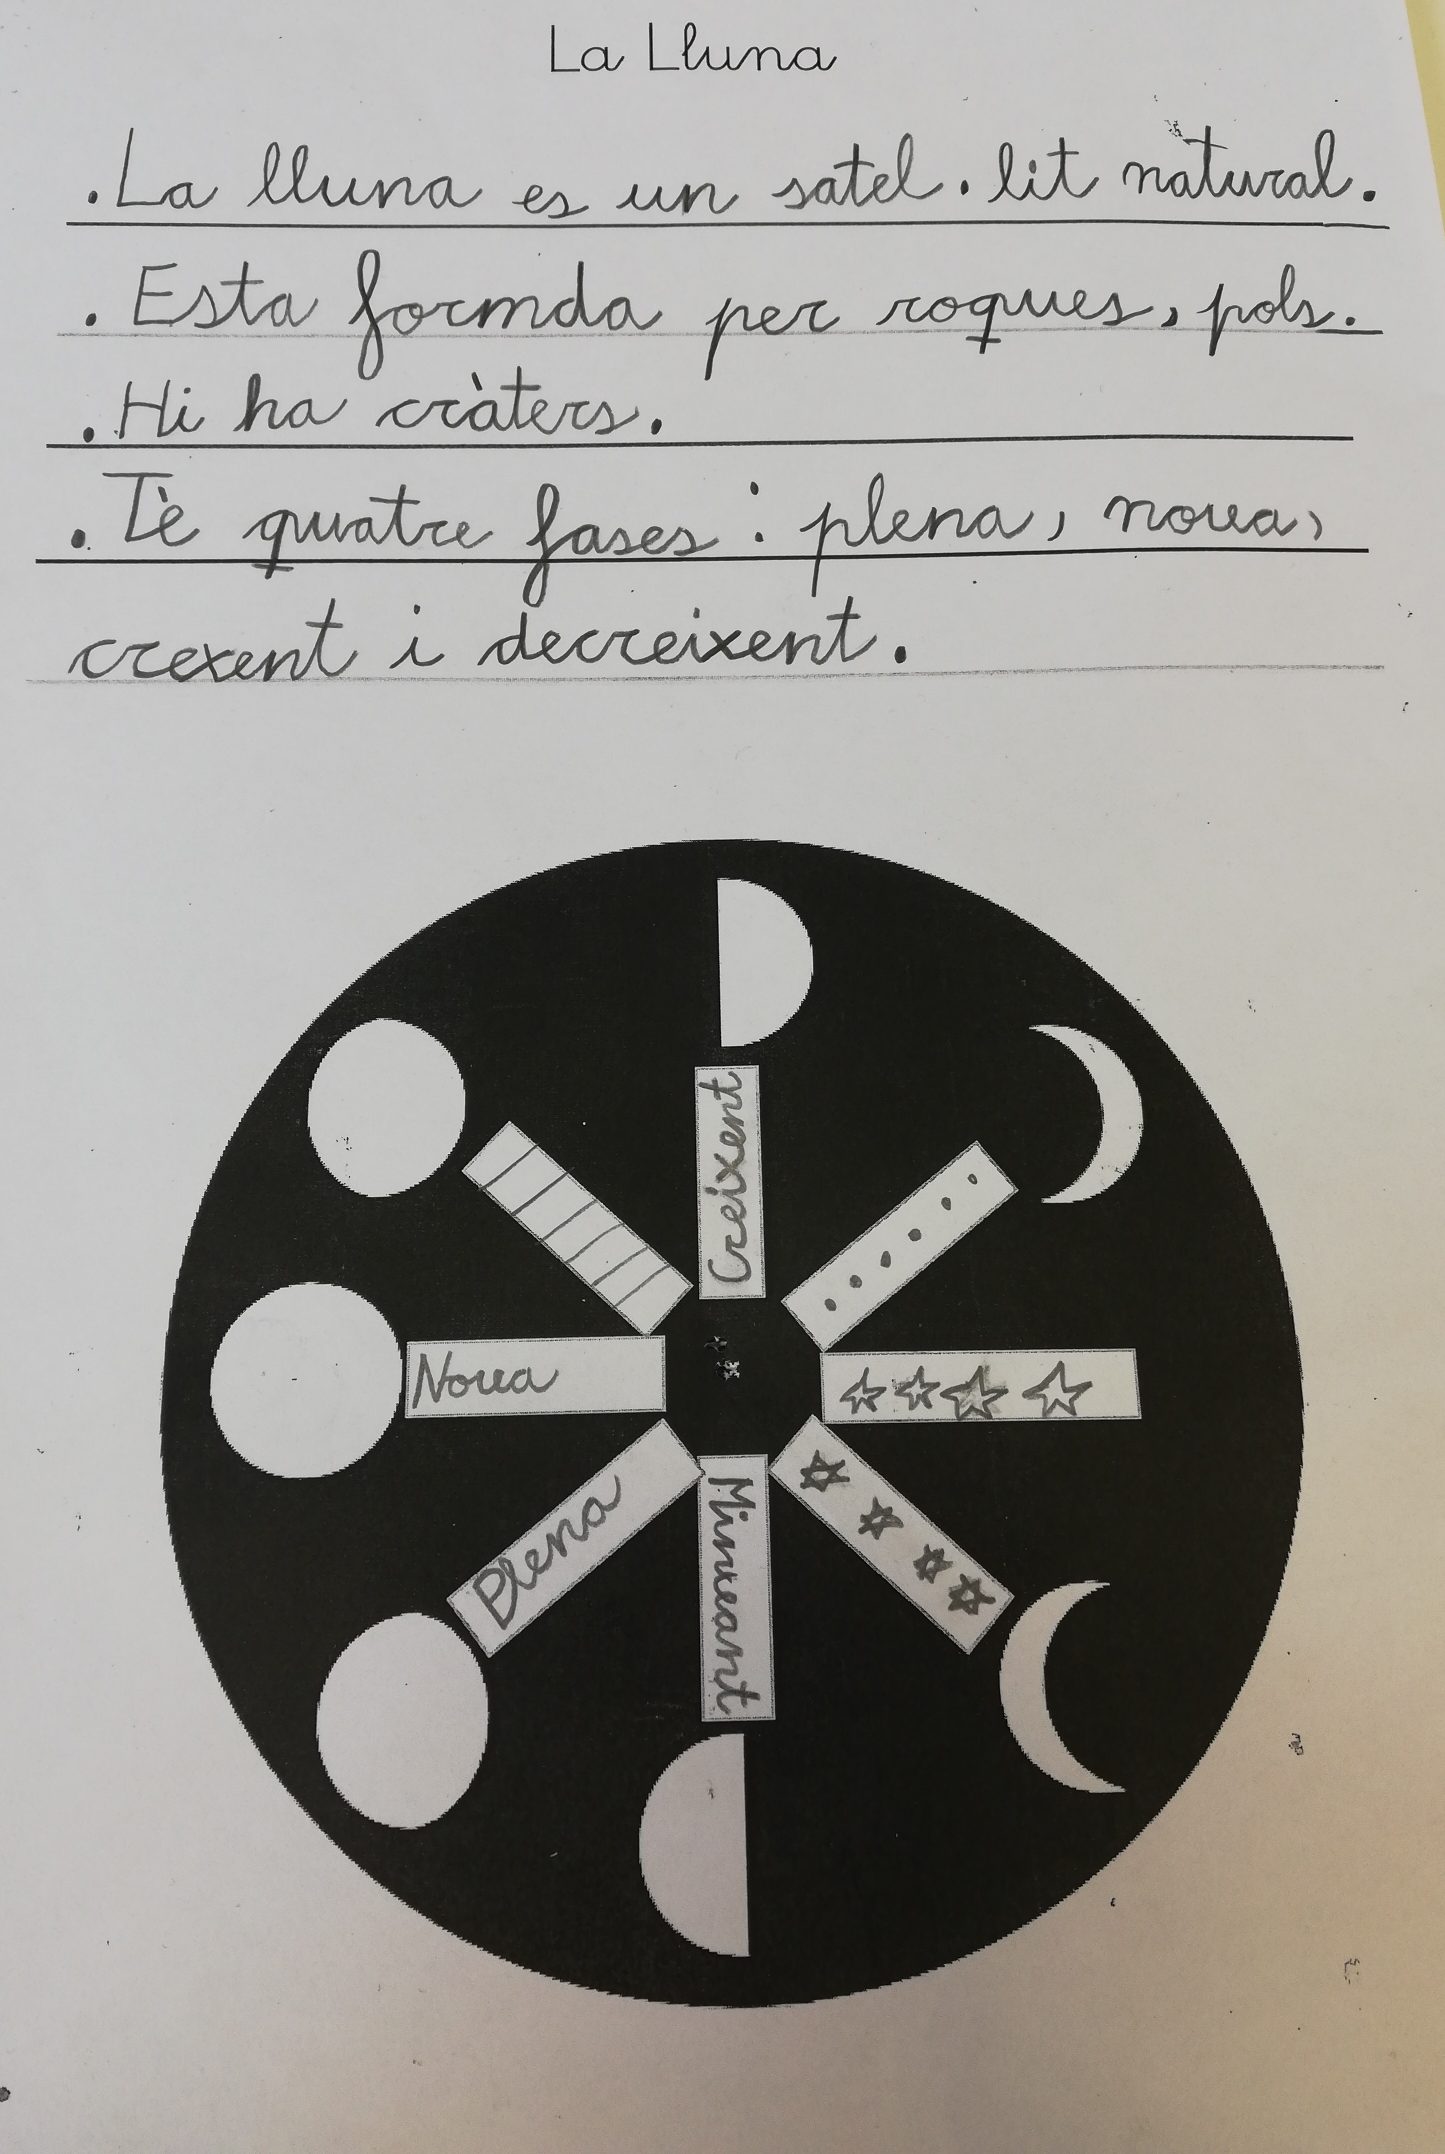 La Lluna
. La lluna es un satel·lit natural.
. Esta formda per roques, pols.
. Hi ha cràters.
. Tè quatre fases: plena, nova,
crexent i decreixent.
Creixent
Nova
Plena
Minveant